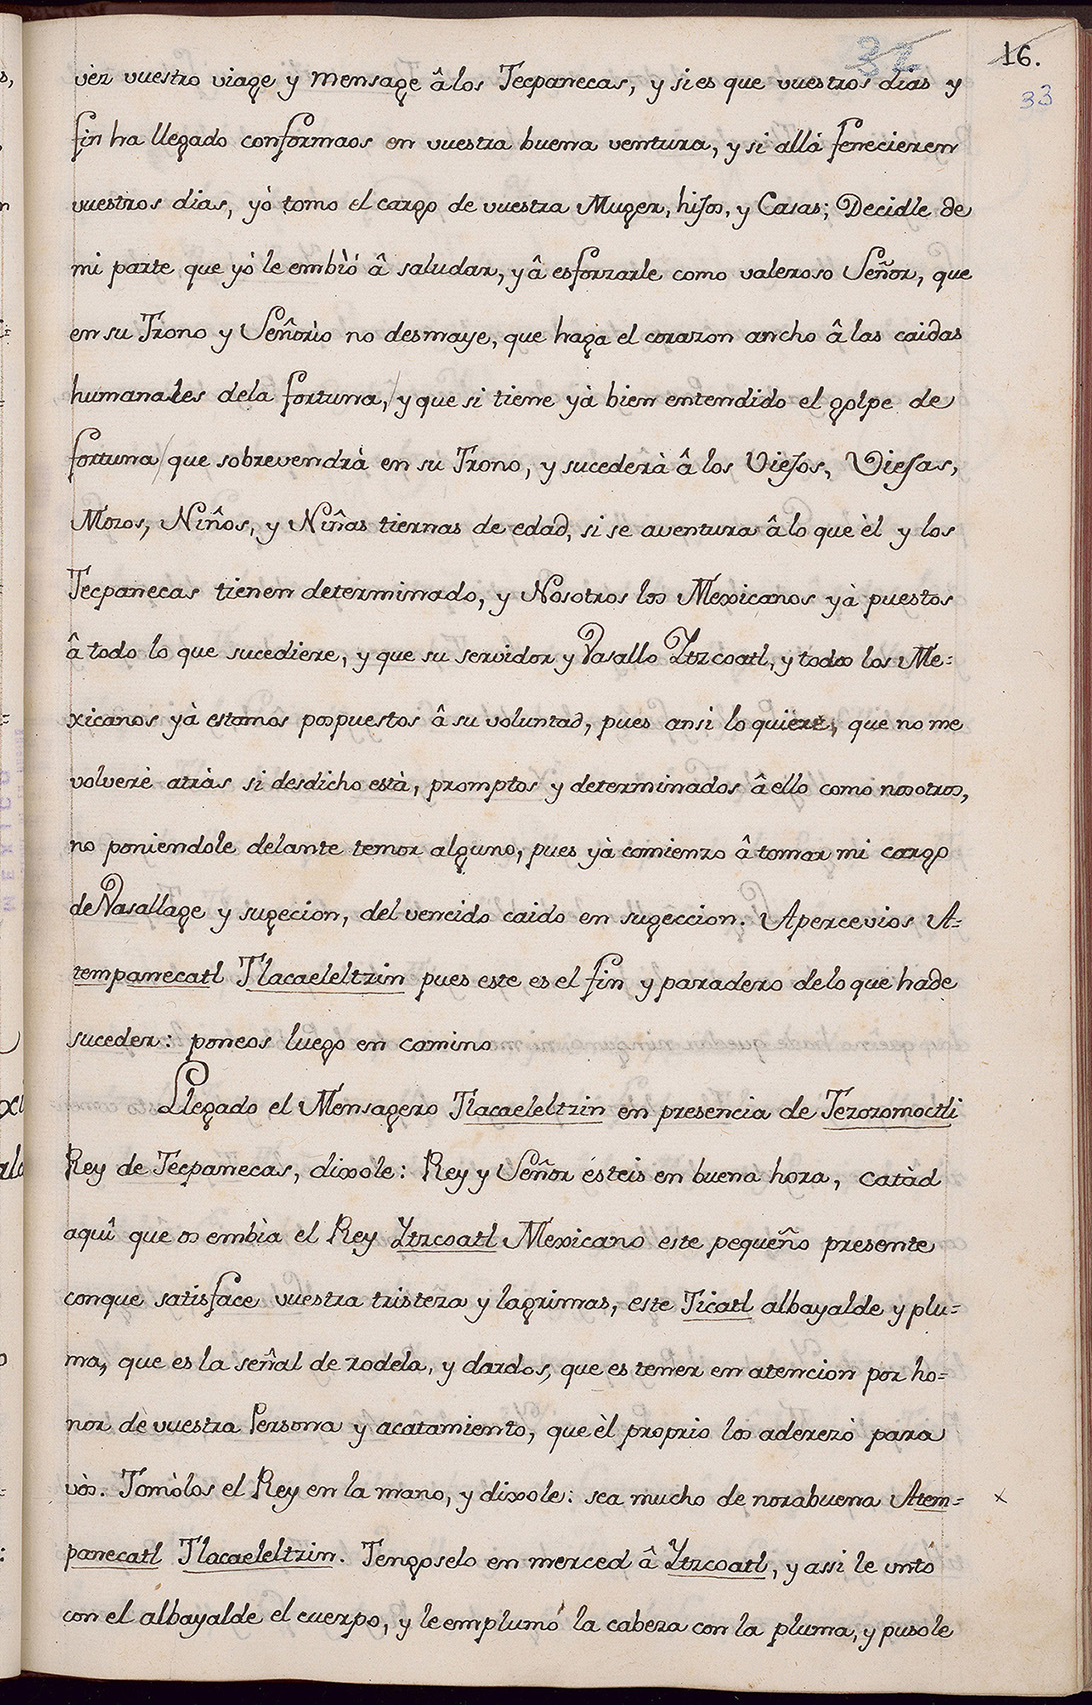 32 16.
33
ver vuestro viage y mensage â los Tecpanecas, y si es que vuestros dias y
fin ha llegado conformaos en vuestra buena ventura, y si allá fenecieren
vuestros dias, yò tomo el cargo de vuestra Muger, hijos, y Casas; Decidle de
mi parte que yò le embiò â saludar, y â esforzarle como valeroso Señor, que
en su Trono y Señorìo no desmaye, que haga el corazon ancho â las caidas
humanales dela fortuna, y que si tiene yà bien entendido el golpe de
fortuna que sobrevendrà en su Trono, y sucederà â los Viejos, Viejas,
Mozos, Niños, y Niñas tiernas de edad, si se aventura â lo que èl y los
Tecpanecas tienen determinado, y Nosotros los Mexicanos yà puestos
â todo lo que sucediere, y que su servidor y Vasallo Ytzcoatl, y todos los Me=
xicanos yà estamos pospuestos â su voluntad, pues ansi lo quiere, que no me
volverè atràs si desdicho està, promptos y determinados â ello como nosotros,
no poniendole delante temor alguno, pues yà comienzo â tomar mi cargo
de Vasallage y sugecion, del vencido caido en sugeccion. Apercevios A=
tempanecatl Tlacaeleltzin pues este es el fin y paradero delo que hade
suceder: poneos luego en camino
Llegado el Mensagero Tlacaeleltzin en presencia de Tezozomoctli
Rey de Tecpanecas, dixole: Rey y Señor ésteis en buena hora, catàd
aquî que os embìa el Rey Ytzcoatl Mexicano este pequeño presente
conque satisface vuestra tristeza y lagrimas, este Ticatl albayalde y plu=
ma, que es la señal de rodela, y dardos, que es tener en atencion por ho=
nor de vuestra Persona y acatamiento, que èl proprio los aderezò para
vòs. Tomòlos el Rey en la mano, y dixole: sea mucho de norabuena Atem= x
panecatl Tlacaeleltzin. Tengoselo en merced â Ytzcoatl, y assi le untò
con el albayalde el cuerpo, y le emplumó la cabeza con la pluma, y pusole